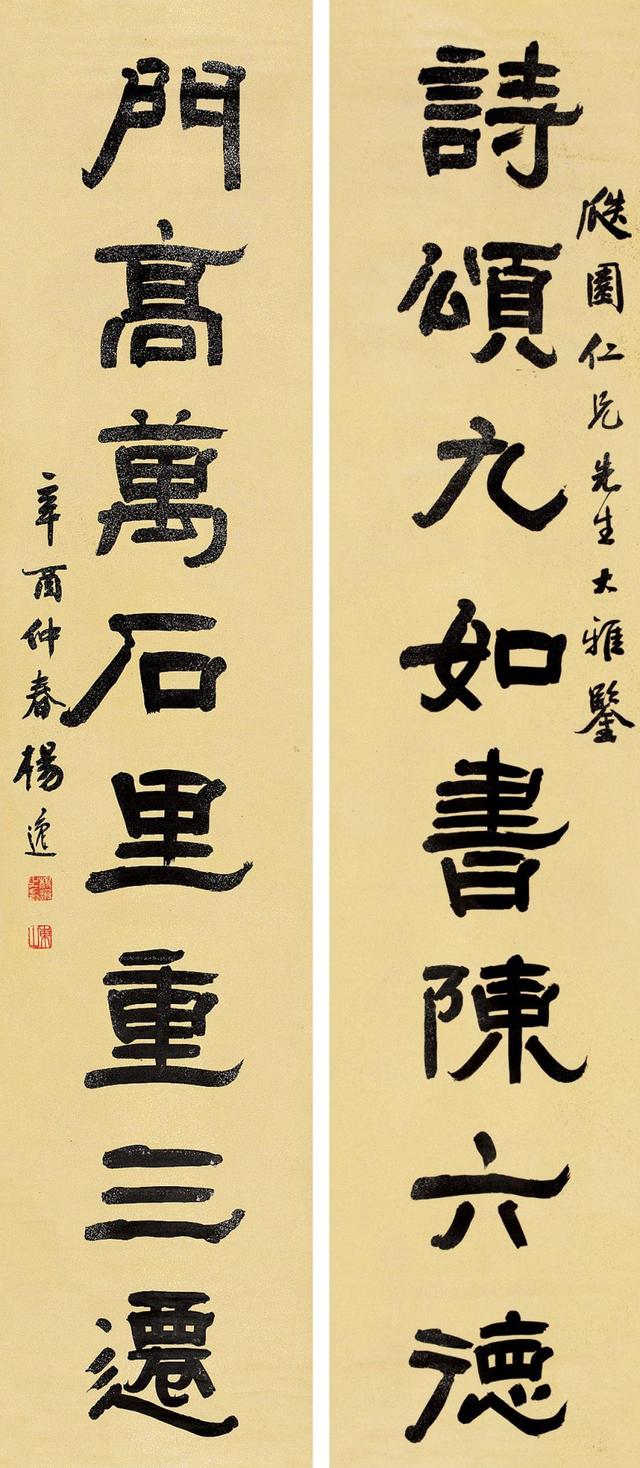 瓞園仁兄先生大雅鑒
詩頌九如書陳六德
門高萬石里重三遷
辛酉仲春楊逸